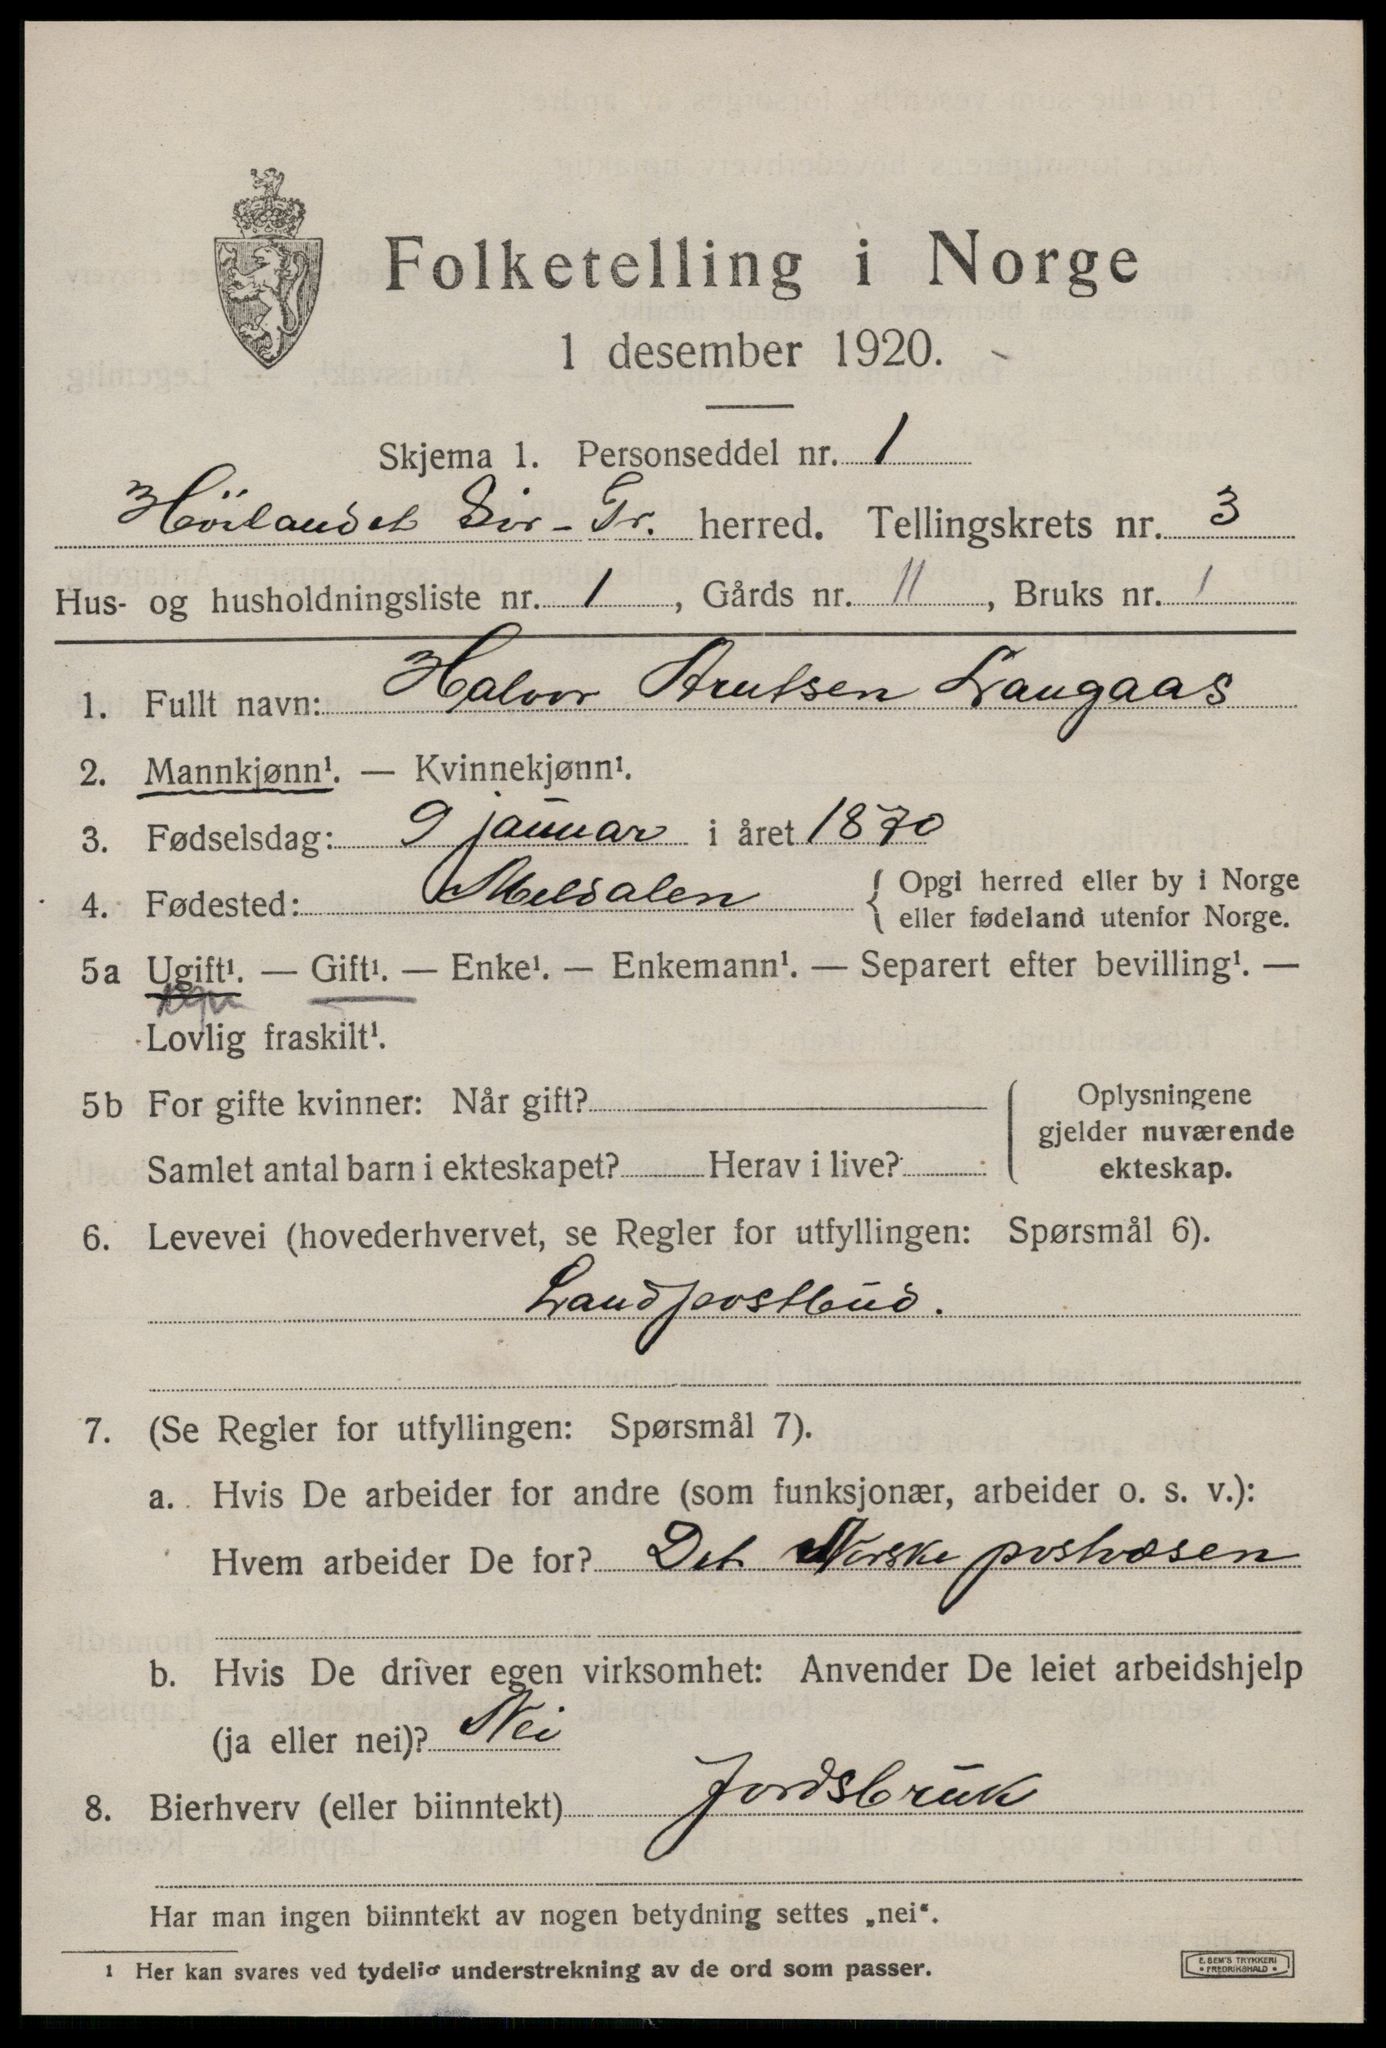 Folketelling i Norge
1 desember 1920.
Skjema 1. Personseddel nr. 1
Höilandet Tr. herred. Tellingskrets nr. 3
Hus- og husholdningsliste nr. 1, Gårds nr. 11, Bruks nr. 1
1. Fullt navn: Halvor Arntsen Langaas
2. Mannkjønn¹. — Kvinnekjønn¹.
3. Fødselsdag: 9 januar i året 1870
4. Fødested: Meldalen { Opgi herred eller by i Norge
eller fødeland utenfor Norge.
5a Ugift¹. — Gift¹. — Enke¹. — Enkemann¹. — Separert efter bevilling¹. —
Lovlig fraskilt¹.
5b For gifte kvinner: Når gift?
Samlet antal barn i ekteskapet? Herav i live?
Oplysningene
gjelder nuværende
ekteskap.
6. Levevei (hovederhvervet, se Regler for utfyllingen: Spørsmål 6).
Landpostbud.
7. (Se Regler for utfyllingen: Spørsmål 7).
a. Hvis De arbeider for andre (som funksjonær, arbeider o. s. v.):
Hvem arbeider De for? Det Norske postvæsen
b. Hvis De driver egen virksomhet: Anvender De leiet arbeidshjelp
(ja eller nei)? Nei
8. Bierhverv (eller biinntekt) Jordsbruk
Har man ingen biinntekt av nogen betydning settes „nei“.
1 Her kan svares ved tydelig understrekning av de ord som passer.
E. SEM'S TRYKKERI
• FREDRIKSHALD •